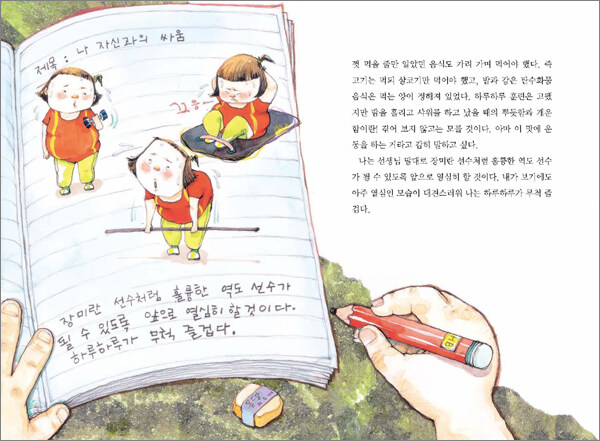 제목 : 나 자신과의 싸움
끄응
장미란 선수처럼 훌륭한 역도 선수가
될 수 있도록 앞으로 열심히 할 것이다.
하루하루가 무척 즐겁다.
HB
껏 먹을 줄만 알았던 음식도 가려 가며 먹어야 했다. 즉
고기는 먹되 살코기만 먹어야 했고, 밥과 같은 탄수화물
음식은 먹는 양이 정해져 있었다. 하루하루 훈련은 고됐
지만 땀을 흘리고 샤워를 하고 났을 때의 뿌듯함과 개운
함이란! 겪어 보지 않고는 모를 것이다. 아마 이 맛에 운
동을 하는 거라고 감히 말하고 싶다.
나는 선생님 말대로 장미란 선수처럼 훌륭한 역도 선수
가 될 수 있도록 앞으로 열심히 할 것이다. 내가 보기에도
아주 열심인 모습이 대견스러워 나는 하루하루가 무척 즐
겁다.